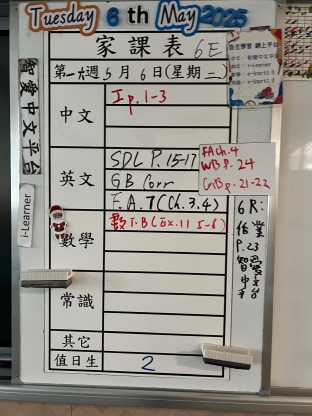 Tuesday 6th May 2025
家課表 6E
第一六週5月6日(星期二)
中文
工p.1-3
英文
SDL P.15-17
GB Corr
F.A.7(Ch.3.4)
FACh.4
WB p.24
GB p.21-22
數學
數T.B(Ex.11 5-6)
常識
其它
值日生
2
智愛中文平台
i-Learner
自主學習 網上平台
6R:
作業
P.23
智愛
中文
平台